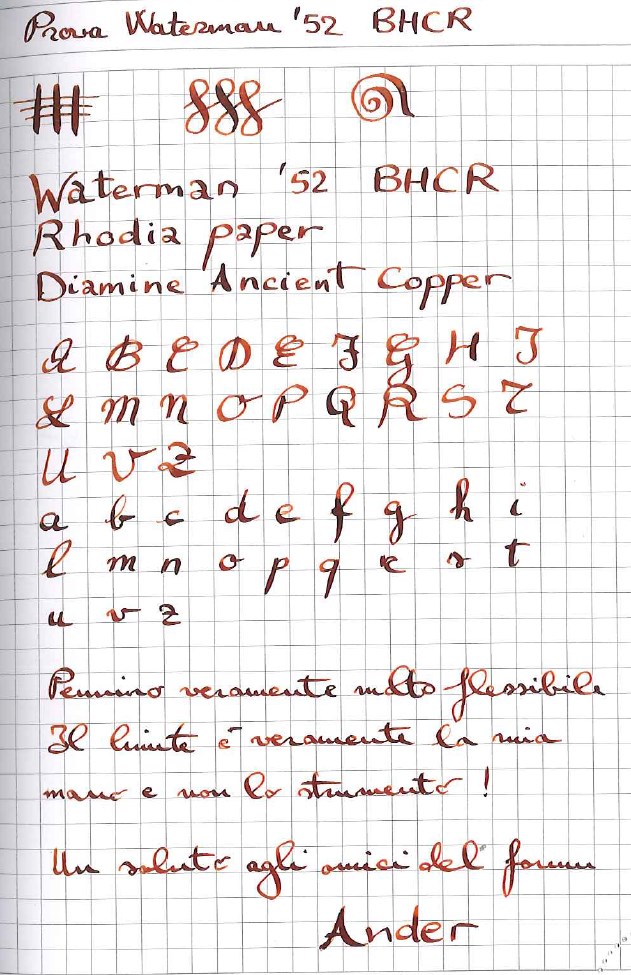 Prova Waterman '52 BHCR
Waterman '52 BHCR
Rhodia paper
Diamine Ancient Copper
A B C D E F G H I
L M N O P Q R S T
U V Z
a b c d e f g h i
l m n o p q r s t
u v z
Pennino veramente molto flessibile
Il limite è veramente la mia
mano e non lo strumento !
Un saluto agli amici del forum
Ander